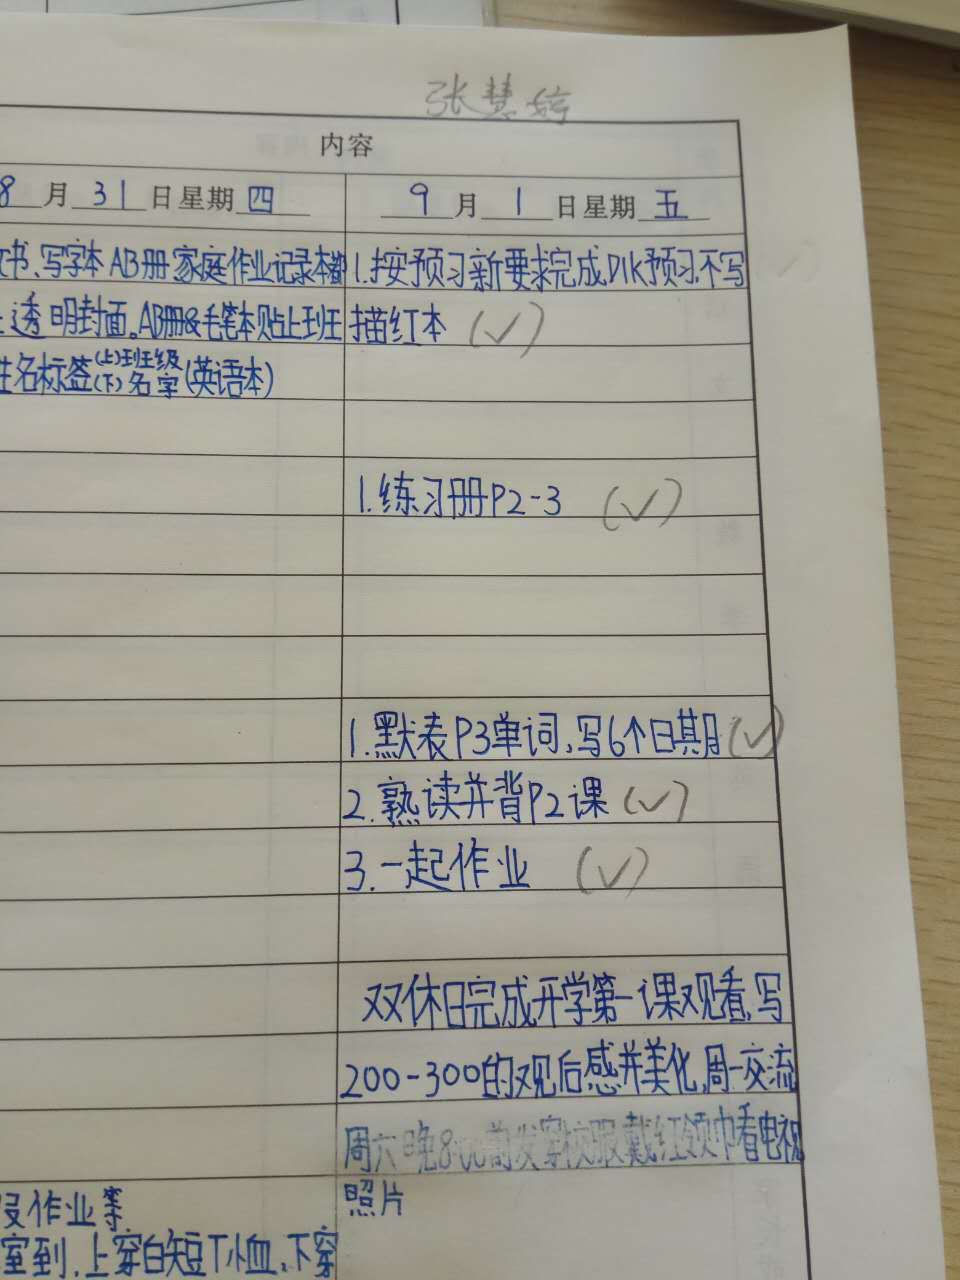 张慧婷
内容
8月31日星期四
9月1日星期五
书、写字本AB册家庭作业记录本都
透明封面。AB册&毛笔本贴上班
姓名标签(上)班级(下)名字(英语本)
1.按预习新要求完成D1K预习.不写
描红本(✓)
1.练习册P2-3 (✓)
1.默表P3单词,写6个日期(✓)
2.熟读并背P2课(✓)
3.一起作业 (✓)
双休日完成开学第一课观看,写
200-300的观后感并美化,周一交流
周六晚8:00前发穿校服戴红领巾看电视
照片
没作业等
室到,上穿白短T恤,下穿